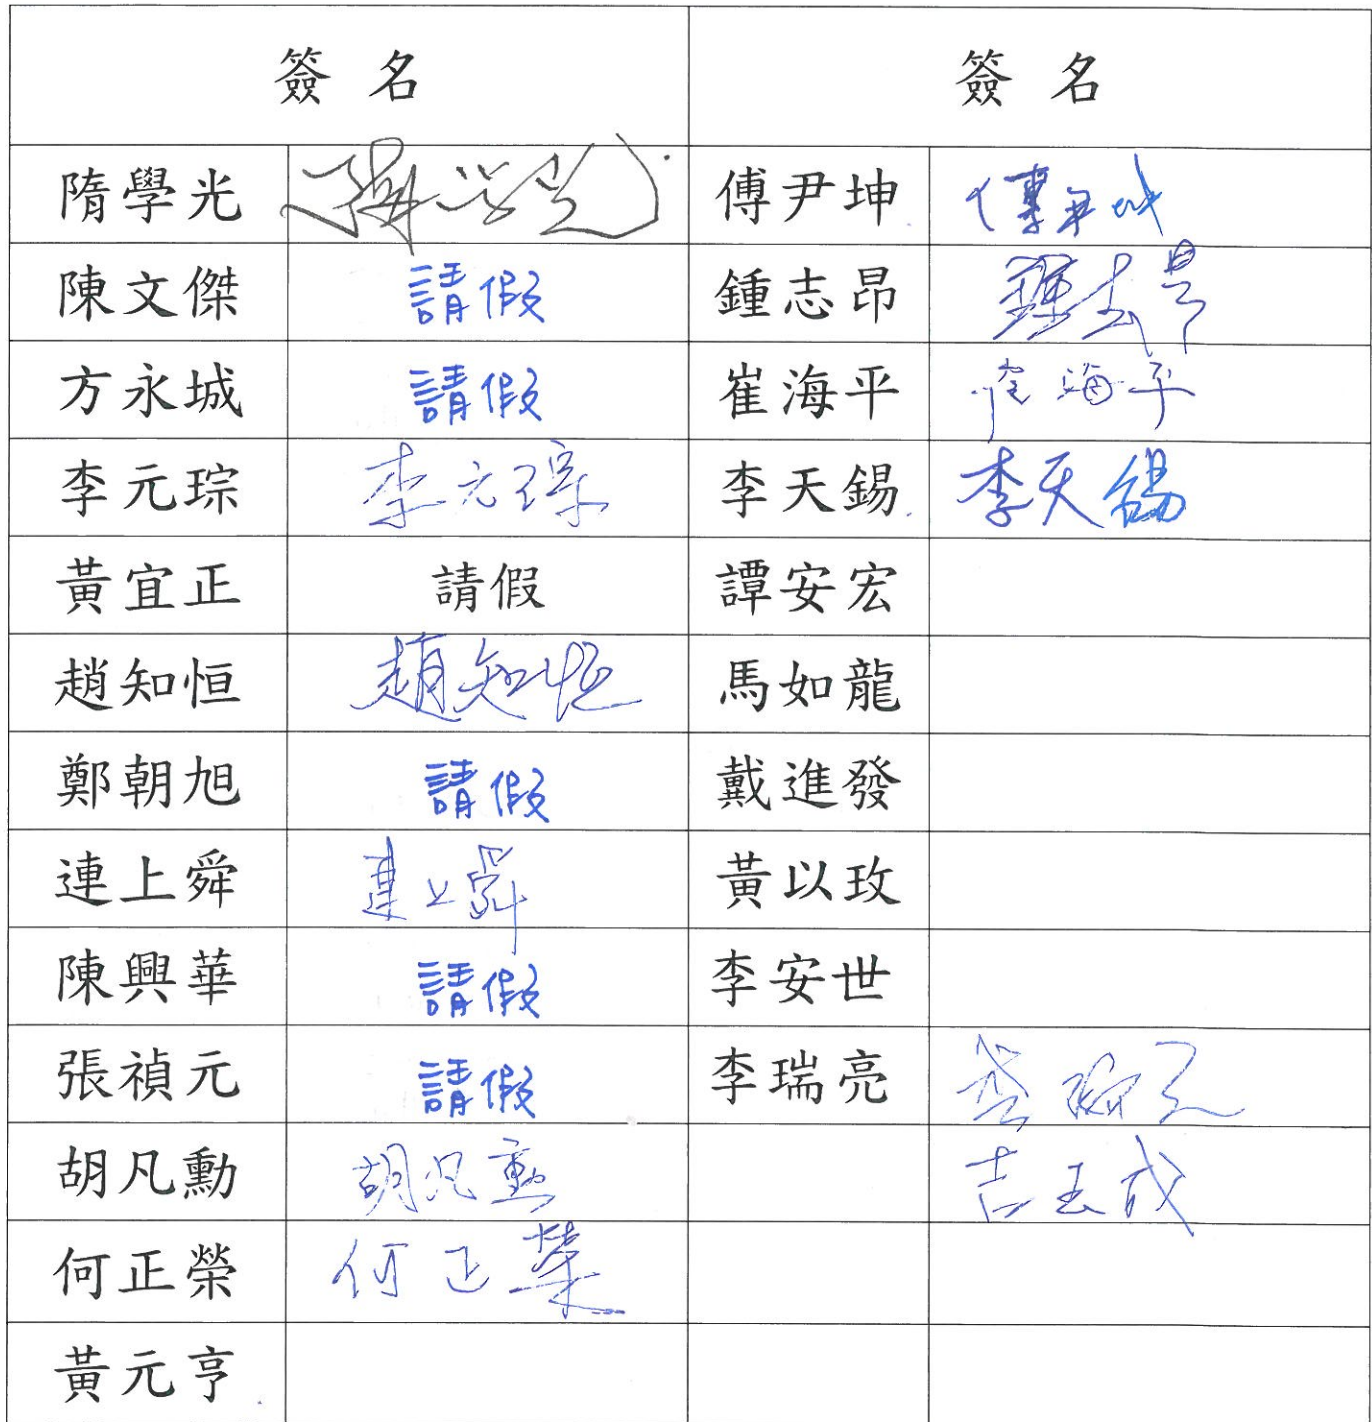 簽 名 簽 名
隋學光 隋學光 傅尹坤 傅尹坤
陳文傑 請假 鍾志昂 鍾志昂
方永城 請假 崔海平 崔海平
李元琮 李元琮 李天錫 李天錫
黃宜正 請假 譚安宏
趙知恒 趙知恒 馬如龍
鄭朝旭 請假 戴進發
連上舜 連上舜 黃以玫
陳興華 請假 李安世
張禎元 請假 李瑞亮 李瑞亮
胡凡勳 胡凡勳 吉玉成
何正榮 何正榮
黃元亨